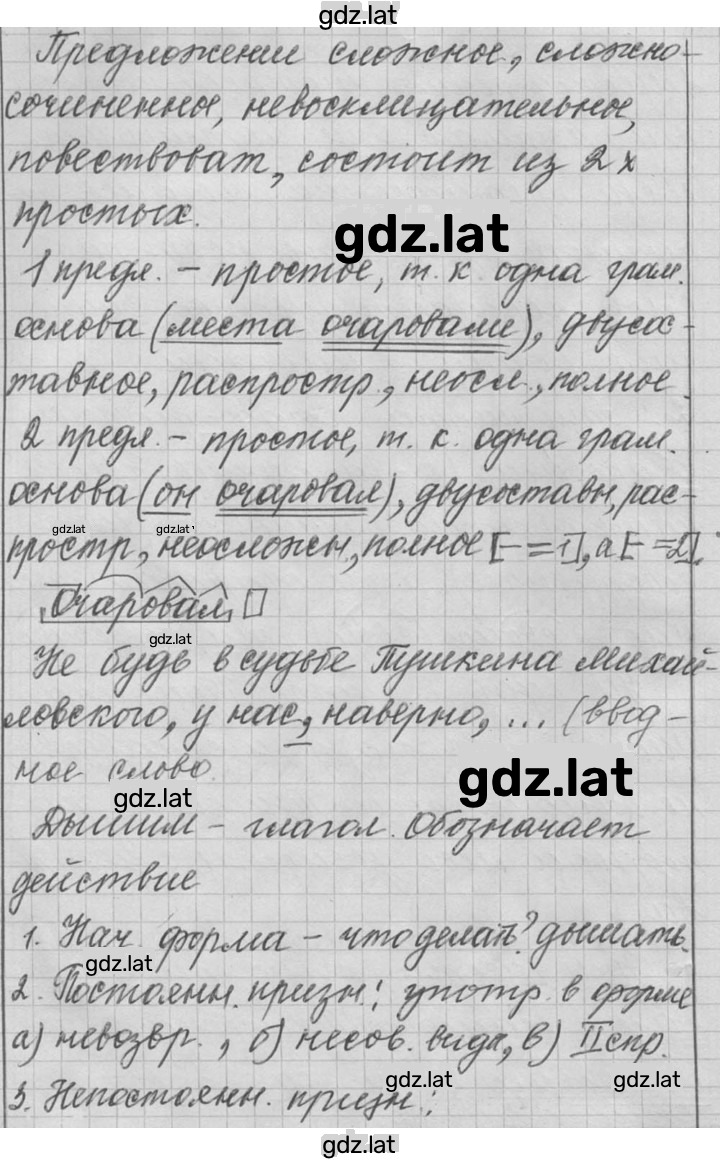 gdz.lat
Предложении сложное, сложно-
сочиненное, невосклицательное,
повествоват., состоит из 2х
простых.
gdz.lat
1 предл. – простое, т. к. одна грам.
основа (места очаровали), двусос-
тавное, распростр., неосл., полное.
2 предл. – простое, т. к. одна грам.
основа (он очаровал), двусоставн, рас-
gdz.lat gdz.lat
простр., неосложн., полное [– = 1], а [– = 2].
Очаровал
gdz.lat
Не будь в судьбе Пушкина Михай-
ловского, у нас, наверно, ... (ввод-
ное слово.
gdz.lat
gdz.lat
Дышим – глагол. Обозначает
действие
1. Нач. форма – что делать? дышать.
gdz.lat
2. Постоянн. призн.: употр. в форме
а) невозвр., б) несов. вида, в) II спр.
gdz.lat gdz.lat
3. Непостоянн. призн.:
gdz.lat